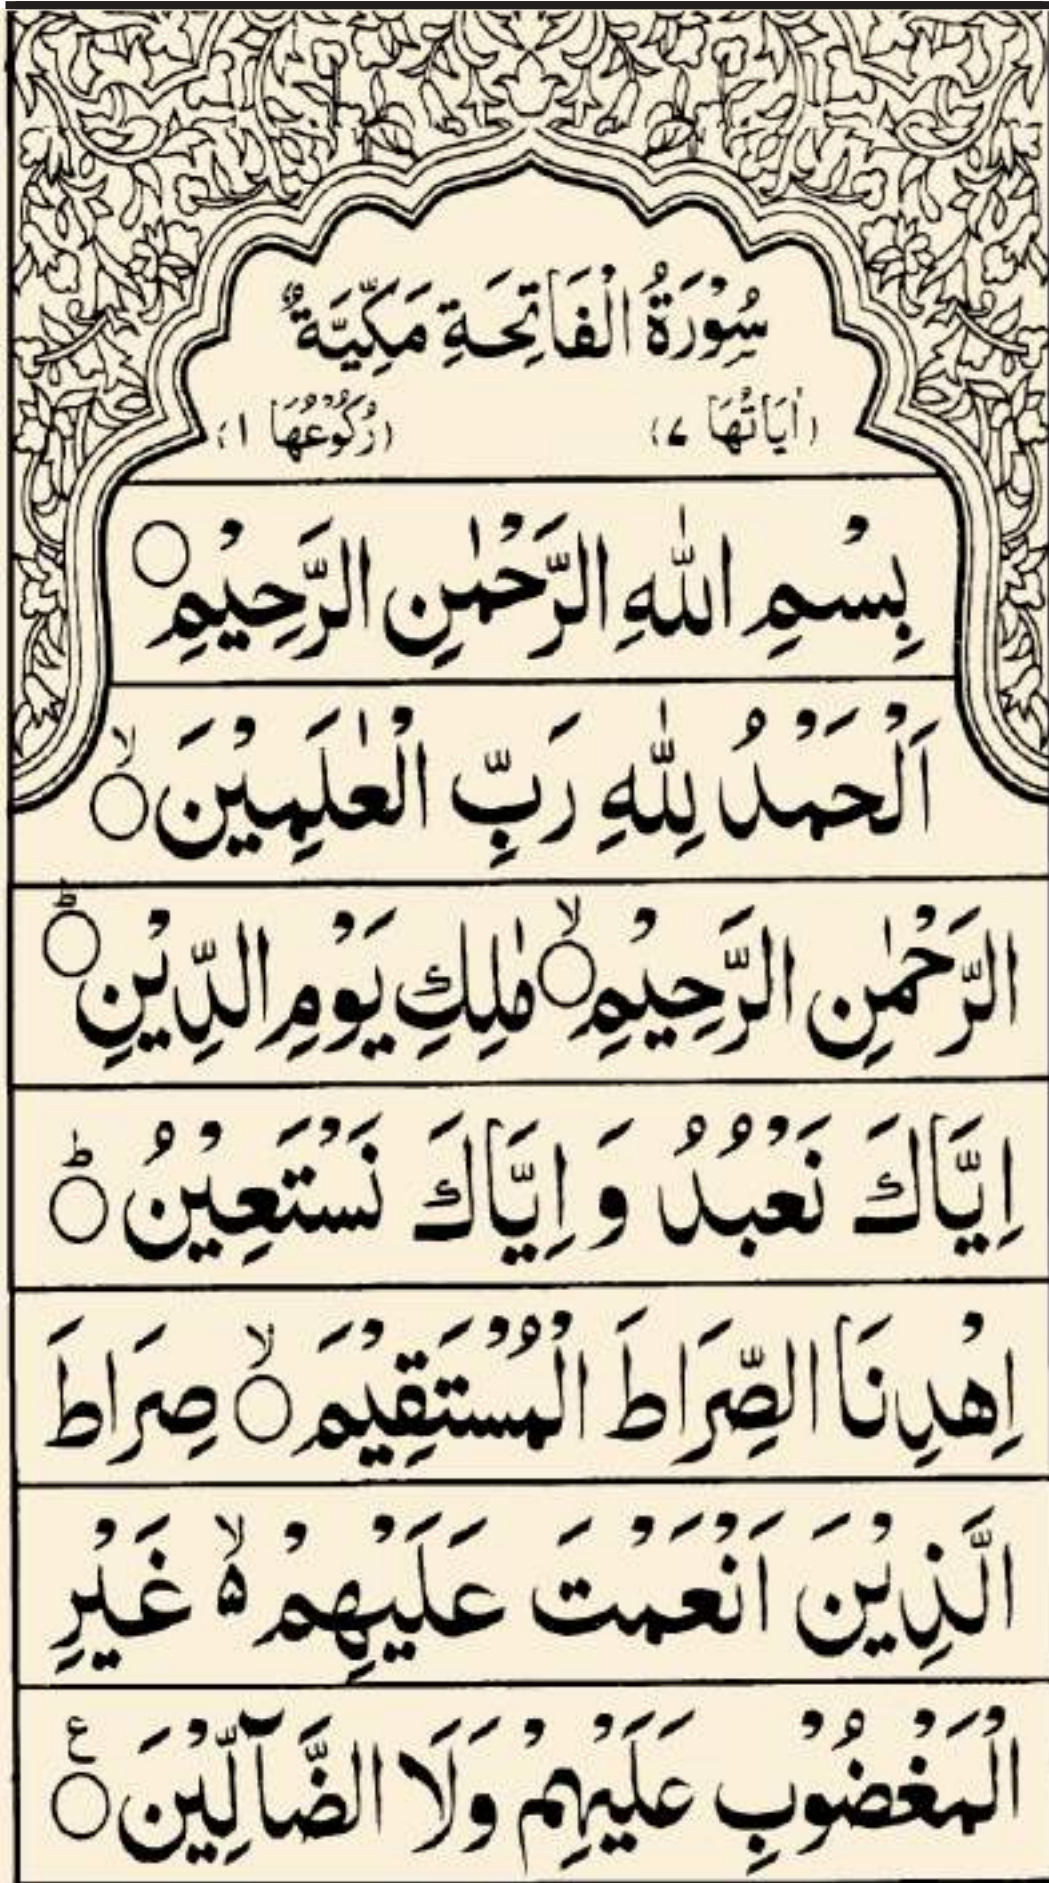 سُوْرَةُ الْفَاتِحَةِ مَكِّيَّةٌ
(اٰیَاتُهَا ۷) (رُكُوْعُهَا ۱)
بِسْمِ اللّٰهِ الرَّحْمٰنِ الرَّحِیْمِ○
اَلْحَمْدُ لِلّٰهِ رَبِّ الْعٰلَمِیْنَ○ۙ
الرَّحْمٰنِ الرَّحِیْمِ○ۙ مٰلِكِ یَوْمِ الدِّیْنِ○ؕ
اِیَّاكَ نَعْبُدُ وَ اِیَّاكَ نَسْتَعِیْنُ○ؕ
اِهْدِنَا الصِّرَاطَ الْمُسْتَقِیْمَ○ۙ صِرَاطَ
الَّذِیْنَ اَنْعَمْتَ عَلَیْهِمْ ۵ۙ غَیْرِ
الْمَغْضُوْبِ عَلَیْهِمْ وَلَا الضَّآلِّیْنَ○ع